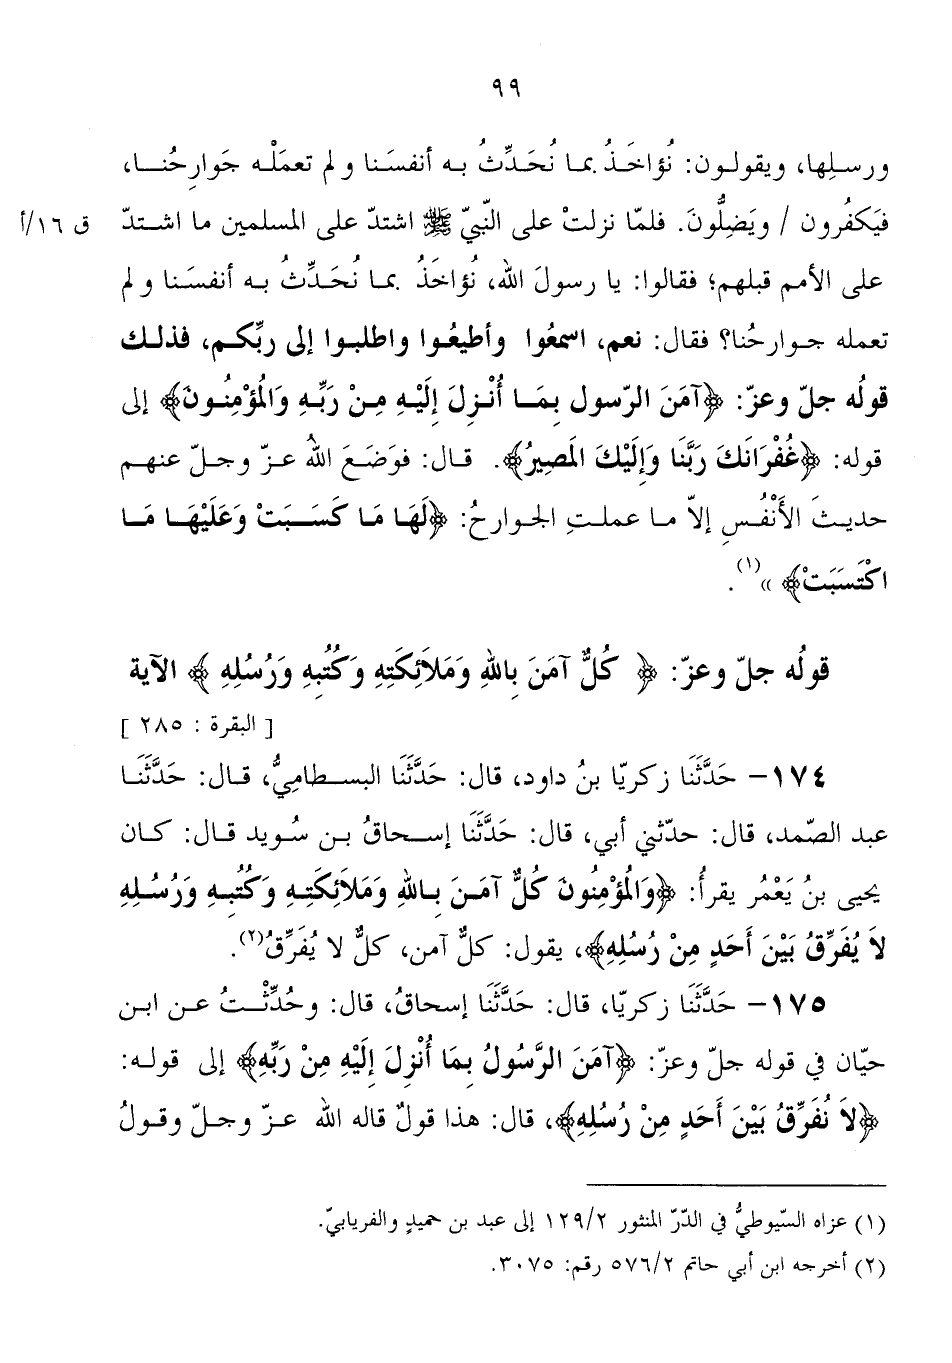 ٩٩
ورسلِها، ويقولون: نُؤاخَذُ بما نُحَدِّثُ به أنفسَنا و لم تعمَلْه جَوارِحُنا،
فيَكفُرون / ويَضِلُّونَ. فلمّا نزلتْ على النّبيّ ﷺ اشتدّ على المسلمين ما اشتدّ ق ١٦/أ
على الأمم قبلهم؛ فقالوا: يا رسولَ الله، نُؤاخَذُ بما نُحَدِّثُ به أنفسَنا و لم
تعمله جوارحُنا؟ فقال: نعم، اسمعُوا وأطيعُوا واطلبوا إلى ربِّكم، فذلك
قولُه جلّ وعزّ: ﴿آمَنَ الرّسول بِمَا أُنْزِلَ إِلَيْهِ مِنْ رَبِّهِ وَالْمُؤْمِنُونَ﴾ إلى
قوله: ﴿غُفْرَانَكَ رَبَّنَا وَإِلَيْكَ المَصيرُ﴾. قال: فوَضَعَ اللهُ عزّ وجلّ عنهم
حديثَ الأَنْفُسِ إلاّ ما عملتِ الجوارحُ: ﴿لَهَا مَا كَسَبَتْ وَعَلَيْهَا مَا
اكْتَسَبَتْ﴾ »(١).
قولُه جلّ وعزّ: ﴿ كُلٌّ آمَنَ بِاللهِ وَمَلاَئِكَتِهِ وَكُتُبِهِ وَرُسُلِهِ ﴾ الآية
[ البقرة : ٢٨٥ ]
١٧٤– حَدَّثَنَا زكريّا بنُ داود، قال: حَدَّثَنَا البسطامِيُّ، قال: حَدَّثَنَا
عبد الصّمد، قال: حدّثني أبي، قال: حَدَّثَنَا إسحاقُ بن سُويد قال: كان
يحيى بنُ يَعْمُر يقرأُ: ﴿وَالْمُؤْمِنُونَ كُلٌّ آمَنَ بِاللهِ وَمَلاَئِكَتِهِ وَكُتُبِهِ وَرُسُلِهِ
لاَ يُفَرِّقُ بَيْنَ أَحَدٍ مِنْ رُسُلِهِ﴾، يقول: كلٌّ آمن، كلٌّ لا يُفَرِّقُ(٢).
١٧٥– حَدَّثَنَا زكريّا، قال: حَدَّثَنَا إسحاقُ، قال: وحُدِّثْتُ عن ابن
حيّان في قوله جلّ وعزّ: ﴿آمَنَ الرَّسُولُ بِمَا أُنْزِلَ إِلَيْهِ مِنْ رَبِّهِ﴾ إلى قوله:
﴿لاَ نُفَرِّقُ بَيْنَ أَحَدٍ مِنْ رُسُلِهِ﴾، قال: هذا قولٌ قاله الله عزّ وجلّ وقولُ
(١) عزاه السّيوطيُّ في الدّرّ المنثور ١٢٩/٢ إلى عبد بن حميدٍ والفريابيّ.
(٢) أخرجه ابن أبي حاتم ٥٧٦/٢ رقم: ٣٠٧٥.